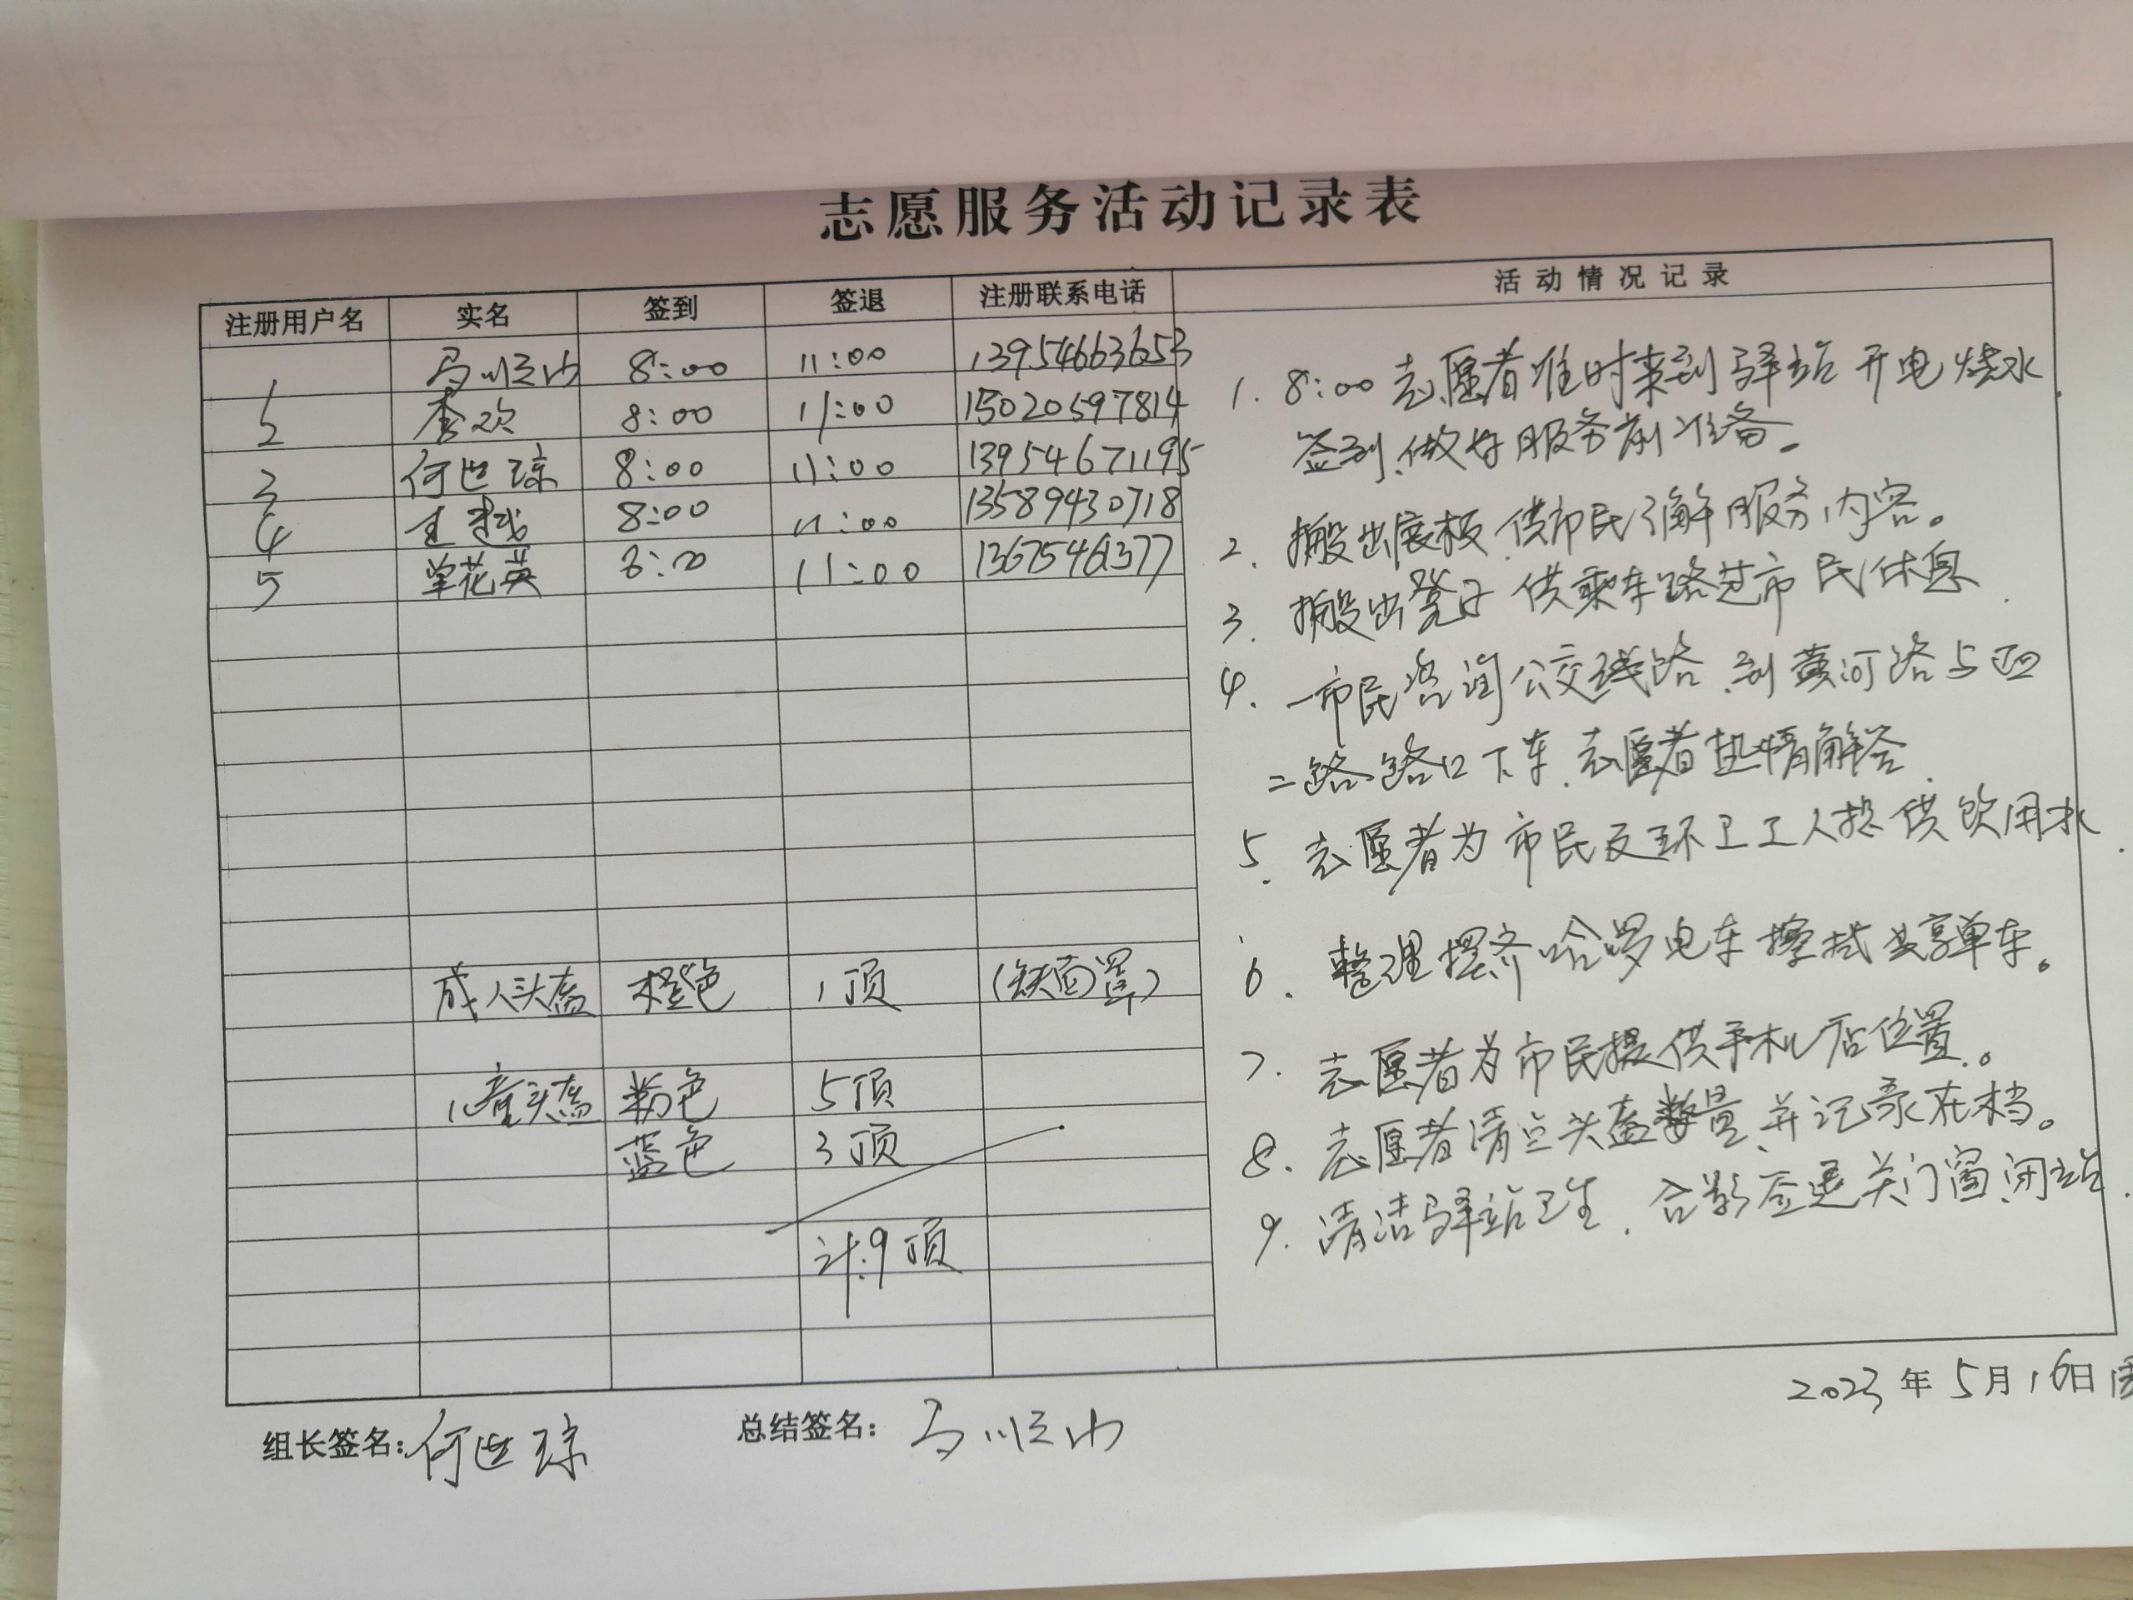 志愿服务活动记录表
注册用户名 实名 签到 签退 注册联系电话 活动情况记录
1 马顺山 8:00 11:00 13954663653
2 李欢 8:00 11:00 15020597814
3 何世琼 8:00 11:00 13954671195
4 王越 8:00 11:00 13589430718
5 单花英 8:00 11:00 13675461377
成人头盔 橙色 1顶 (缺面罩)
儿童头盔 粉色 5顶
蓝色 3顶
计:9顶
1. 8:00志愿者准时来到驿站开电烧水
签到、做好服务前准备。
2. 搬出展板、供市民了解服务内容。
3. 搬出凳子供乘车路过市民休息.
4. 一市民咨询公交线路、到黄河路与西
二路路口下车、志愿者热情解答.
5. 志愿者为市民及环卫工人提供饮用水.
6. 整理摆齐哈啰电车擦拭共享单车。
7. 志愿者为市民提供手机店位置。
8. 志愿者清点头盔数量、并记录在档。
9. 清洁驿站卫生、合影签退关门窗闭站.
2023年5月16日
组长签名:何世琼 总结签名:马顺山